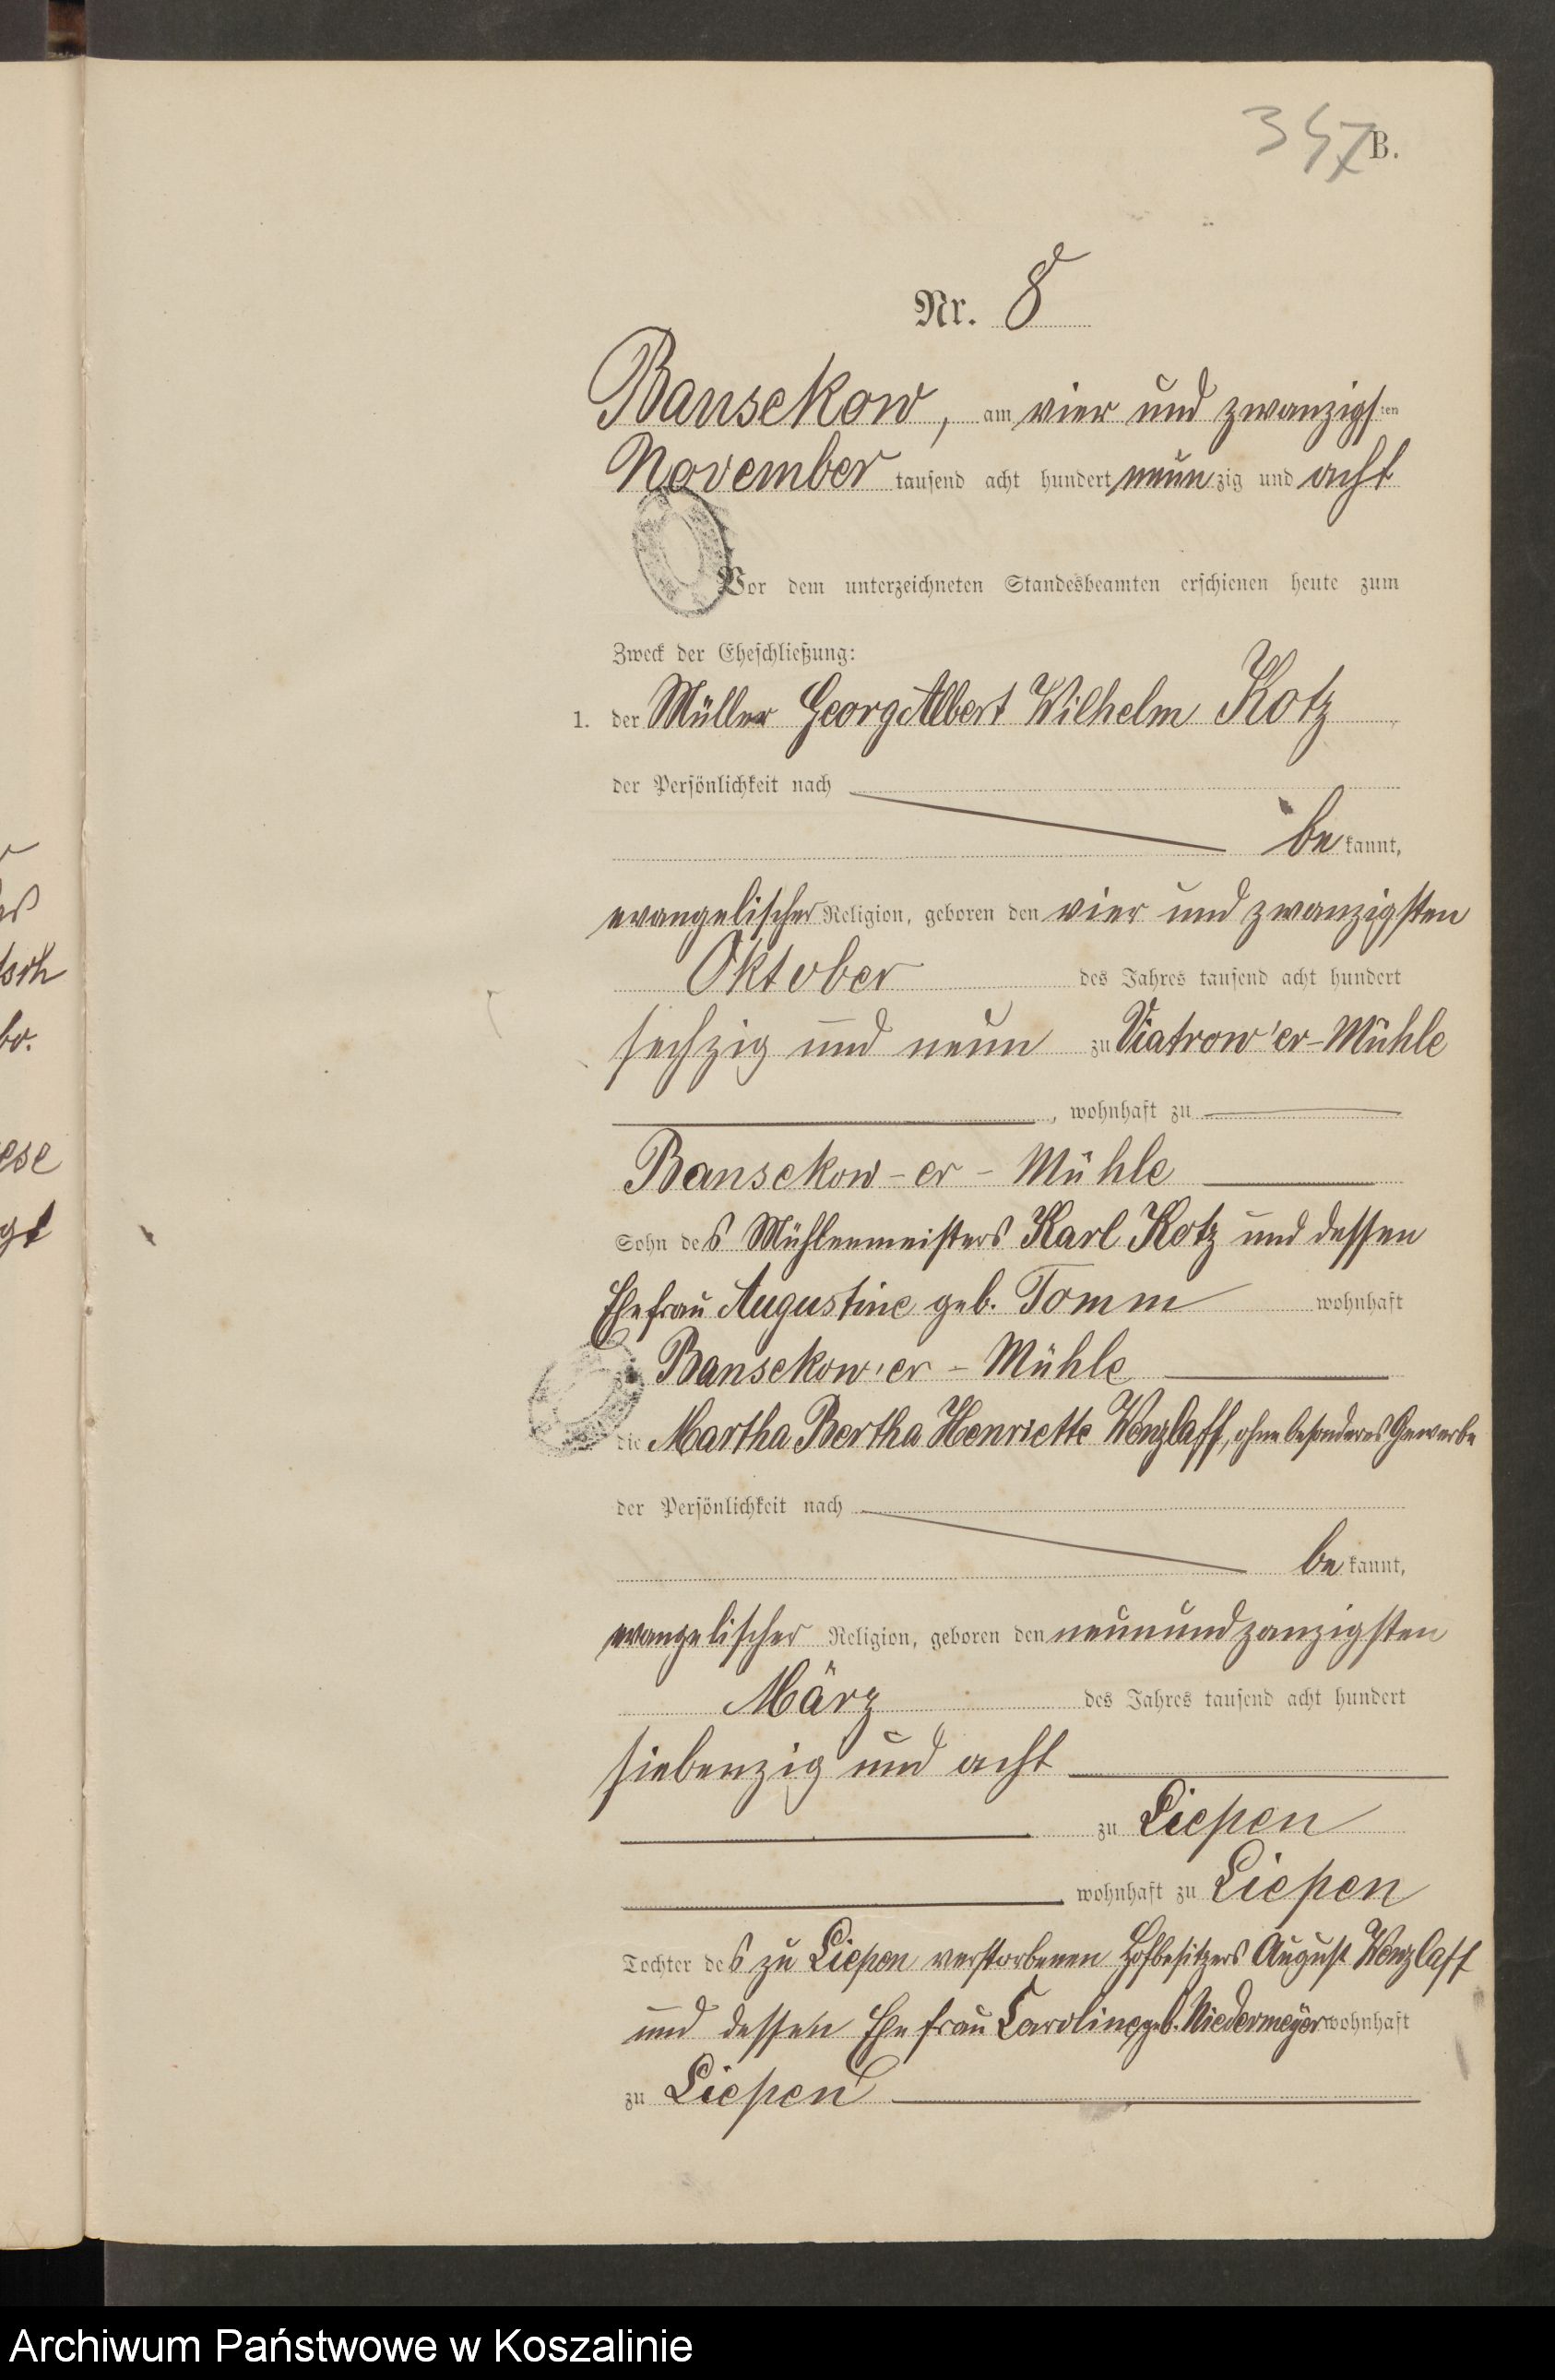 347
B.
Nr. 8
Bansekow, am vier und zwanzigsten
November tausend acht hundert neunzig und acht
Vor dem unterzeichneten Standesbeamten erschienen heute zum
Zweck der Eheschließung:
1. der Müller Georg Albert Wilhelm Kotz
der Persönlichkeit nach
bekannt,
evangelischer Religion, geboren den vier und zwanzigsten
Oktober des Jahres tausend acht hundert
sechzig und neun zu Viatrow'er-Mühle
, wohnhaft zu
Bansekow-er-Mühle
Sohn des Mühlenmeisters Karl Kotz und dessen
Ehefrau Augustine geb. Tomm wohnhaft
Bansekow'er-Mühle
die Martha Bertha Henriette Wenzlaff, ohne besonderes Gewerbe
der Persönlichkeit nach
bekannt,
evangelischer Religion, geboren den neunundzanzigsten
März des Jahres tausend acht hundert
siebenzig und acht
zu Liepen
wohnhaft zu Liepen
Tochter des zu Liepen verstorbenen Hofbesitzers August Wenzlaff
und dessen Ehefrau Caroline, geb. Niedermeyer wohnhaft
zu Liepen
Archiwum Państwowe w Koszalinie